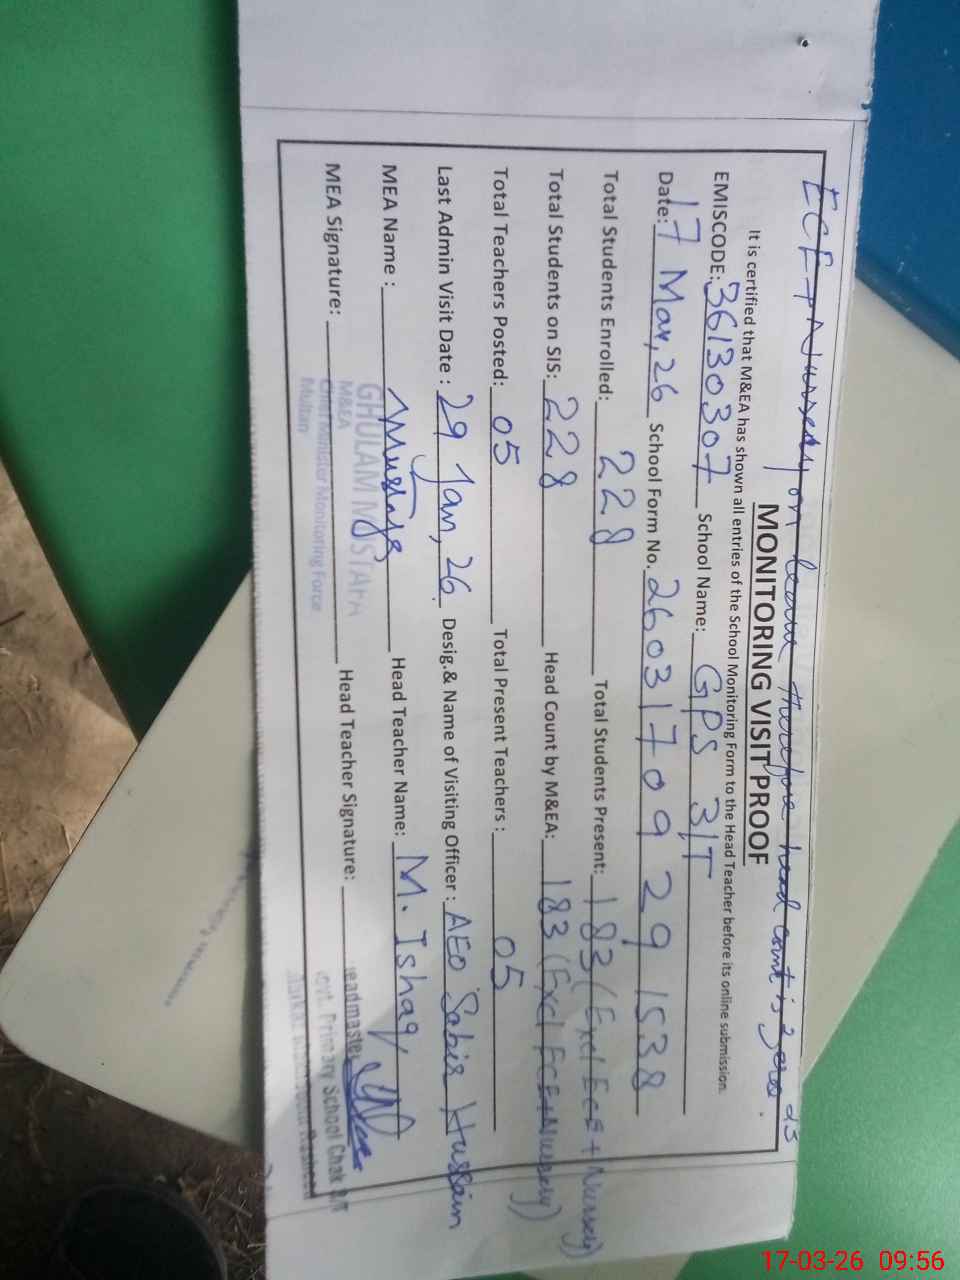 ECE + Nursery on leave therefore head count is zero 25
MONITORING VISIT PROOF
It is certified that M&EA has shown all entries of the School Monitoring Form to the Head Teacher before its online submission.
EMISCODE: 36130307 School Name: GPS 3/T
Date: 17 Mar, 26 School Form No. 26031709291538
Total Students Enrolled: 228 Total Students Present: 183 (Excl ECE + Nursery)
Total Students on SIS: 228 Head Count by M&EA: 183 (Excl ECE+Nursery)
Total Teachers Posted: 05 Total Present Teachers : 05
Last Admin Visit Date : 29 Jan, 26 Desig.& Name of Visiting Officer : AEO Sabir Hussain
MEA Name : Mustafa Head Teacher Name: M. Ishaq
MEA Signature: Head Teacher Signature:
GHULAM MUSTAFA
M&EA
Chief Minister Monitoring Force
Multan
Headmaster
Govt. Primary School Chak 3/T
17-03-26 09:56